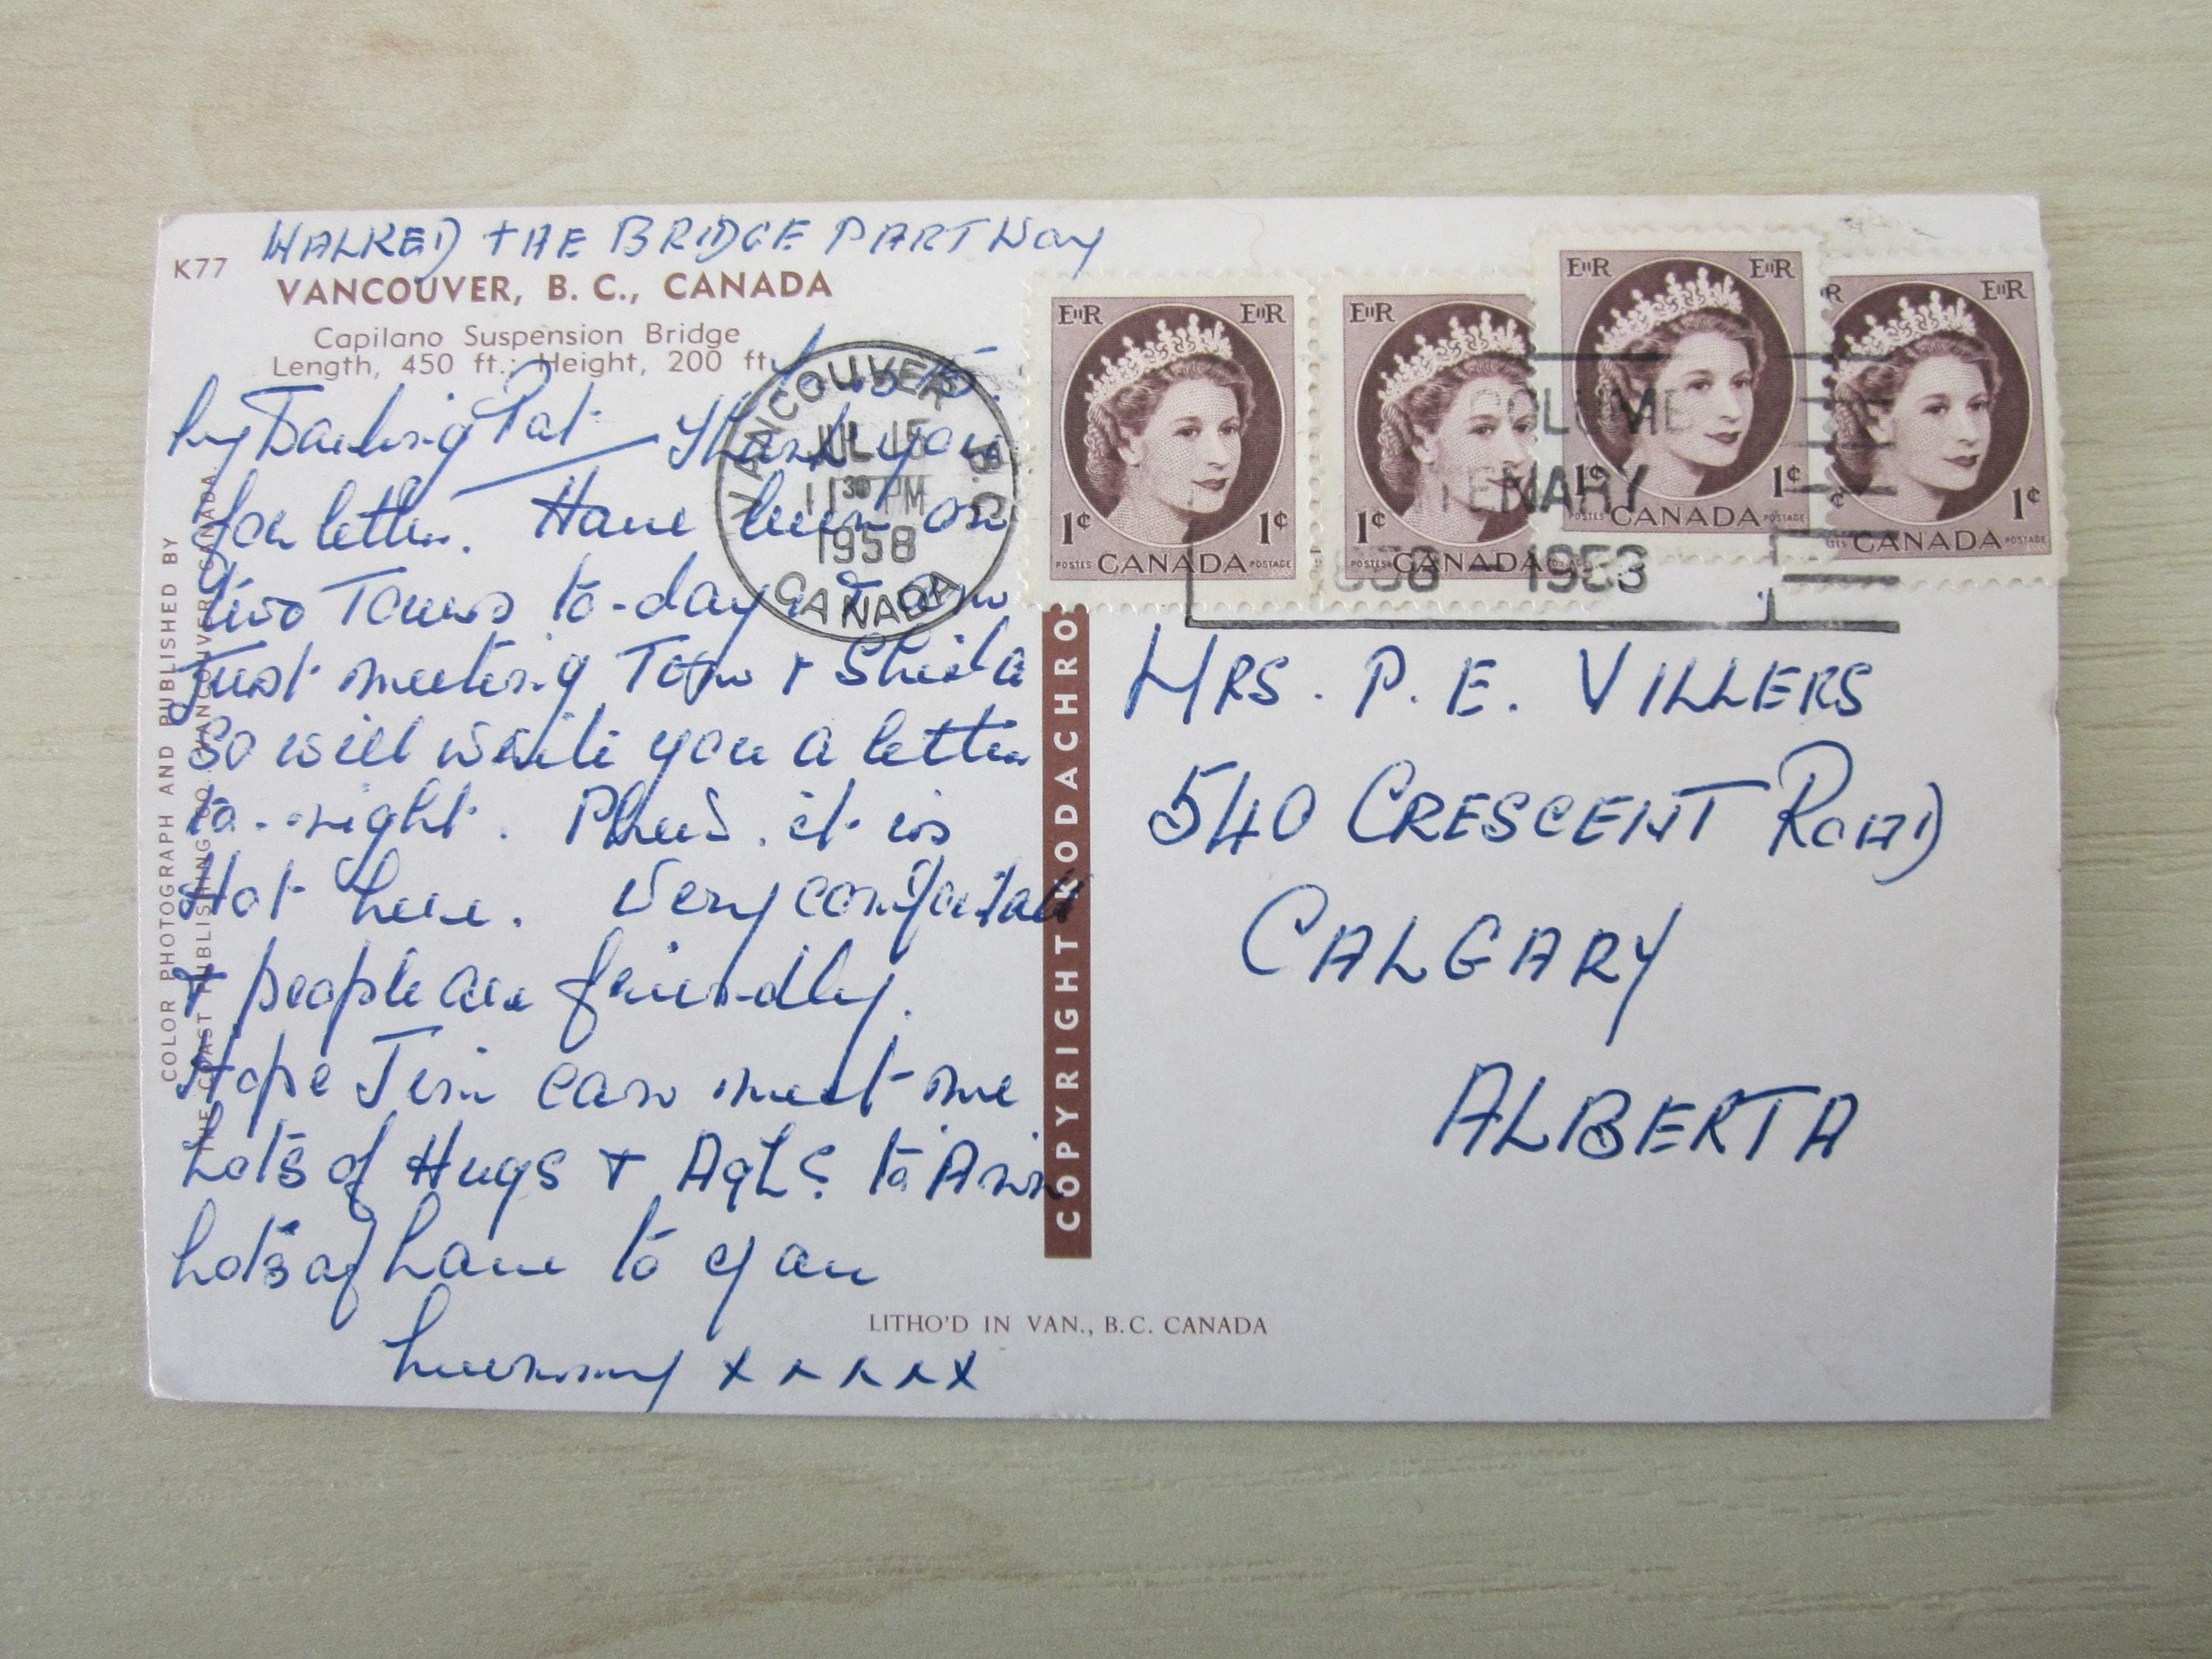 WALKED THE BRIDGE PARTWay
K77
VANCOUVER, B. C., CANADA
Capilano Suspension Bridge
Length, 450 ft.: Height, 200 ft.
My Darling Pat Thank you
for letter. Have been on
two Tours to-day & am
Just meeting Tom & Sheila
So will write you a letter
to-night. Phew. it is
Hot here. Very comfortable
& people are friendly.
Hope Jim can meet me
Lots of Hugs & to Ann
Lots of Love to you
Mummy x x x x x
COLOR PHOTOGRAPH AND PUBLISHED BY
THE COAST PUBLISHING CO. VANCOUVER CANADA
VANCOUVER B.C.
JUL 15
11 30 PM
1958
CANADA
EIIR EIIR
1¢ 1¢
POSTES CANADA POSTAGE
EIIR
1¢
POSTES CANADA
EIIR EIIR
1¢ 1¢
POSTES CANADA POSTAGE
R EIIR
¢ 1¢
TES CANADA POSTAGE
COLUMB
TENARY
1958
COPYRIGHT KODACHRO
MRS. P. E. VILLERS
540 CRESCENT ROAD
CALGARY
ALBERTA
LITHO'D IN VAN., B.C. CANADA